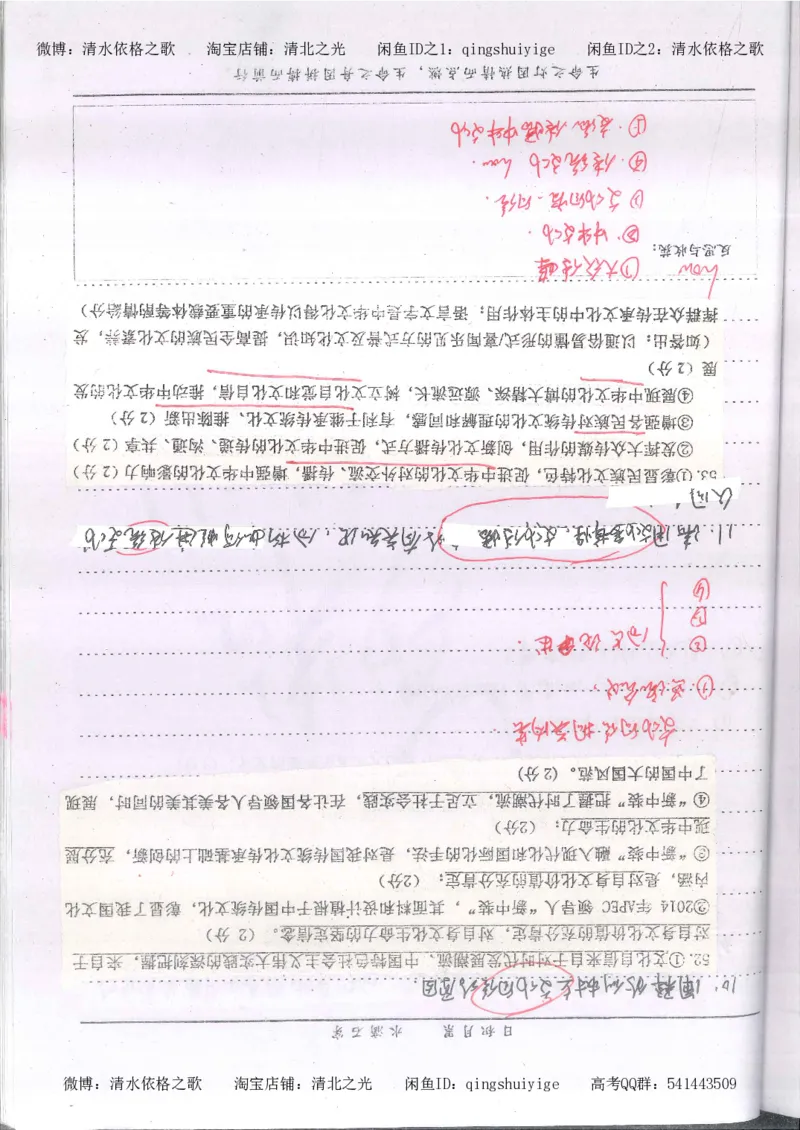 微博：清水依格之歌 淘宝店铺：清北之光 闲鱼ID之1：qingshuiyige 闲鱼ID之2：清水依格之歌
日积月累 水滴石穿
10. 阐释我们树立文化自信的原因
52.①文化自信来自于对时代发展潮流、中国特色社会主义伟大实践的深刻把握，来自于
对自身文化价值的充分肯定，对自身文化生命力的坚定信念。（2 分）
②2014 年APEC 领导人“新中装”，其面料和设计植根于中国传统文化，彰显了我国文化
内涵，是对自身文化价值的充分肯定；（2分）
③“新中装”融入现代化和国际化的手法，是对我国传统文化传承基础上的创新，充分展
现中华文化的生命力；（2分）
④“新中装”把握了时代潮流，立足于社会实践，在让各国领导人各美其美的同时，展现
了中国的大国风范。（2 分）
文化自信
①
②
③
④
11. 请用文化多样性、文化传播 的有关知识，分析如何推进传统文化
53.①彰显民族文化特色，促进中华文化的对外交流、传播，增强中华文化的影响力（2 分）
②发挥大众传媒的作用，创新文化传播方式，促进中华文化的传递、沟通、共享（2 分）
③增强各民族对传统文化的理解和认同感，有利于继承传统文化、推陈出新（2 分）
④展现中华文化的博大精深、源远流长，树立文化自觉和文化自信，推动中华文化的发
展（2 分）
（如答出：以通俗易懂的形式/喜闻乐见的方式普及文化知识，提高全民族的文化素养，发
挥群众在传承文化中的主体作用；语言文字是中华文化得以传承的重要载体等酌情给分）
how ①大众传媒
反思与收获：
②中华文化
④传统文化 how
⑤交流传播中华文化
生命之灯因热情而点燃，生命之舟因拼搏而前行
微博：清水依格之歌 淘宝店铺：清北之光 闲鱼ID：qingshuiyige 高考QQ群：541443509